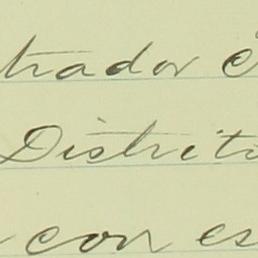 trador
Distrito
con es